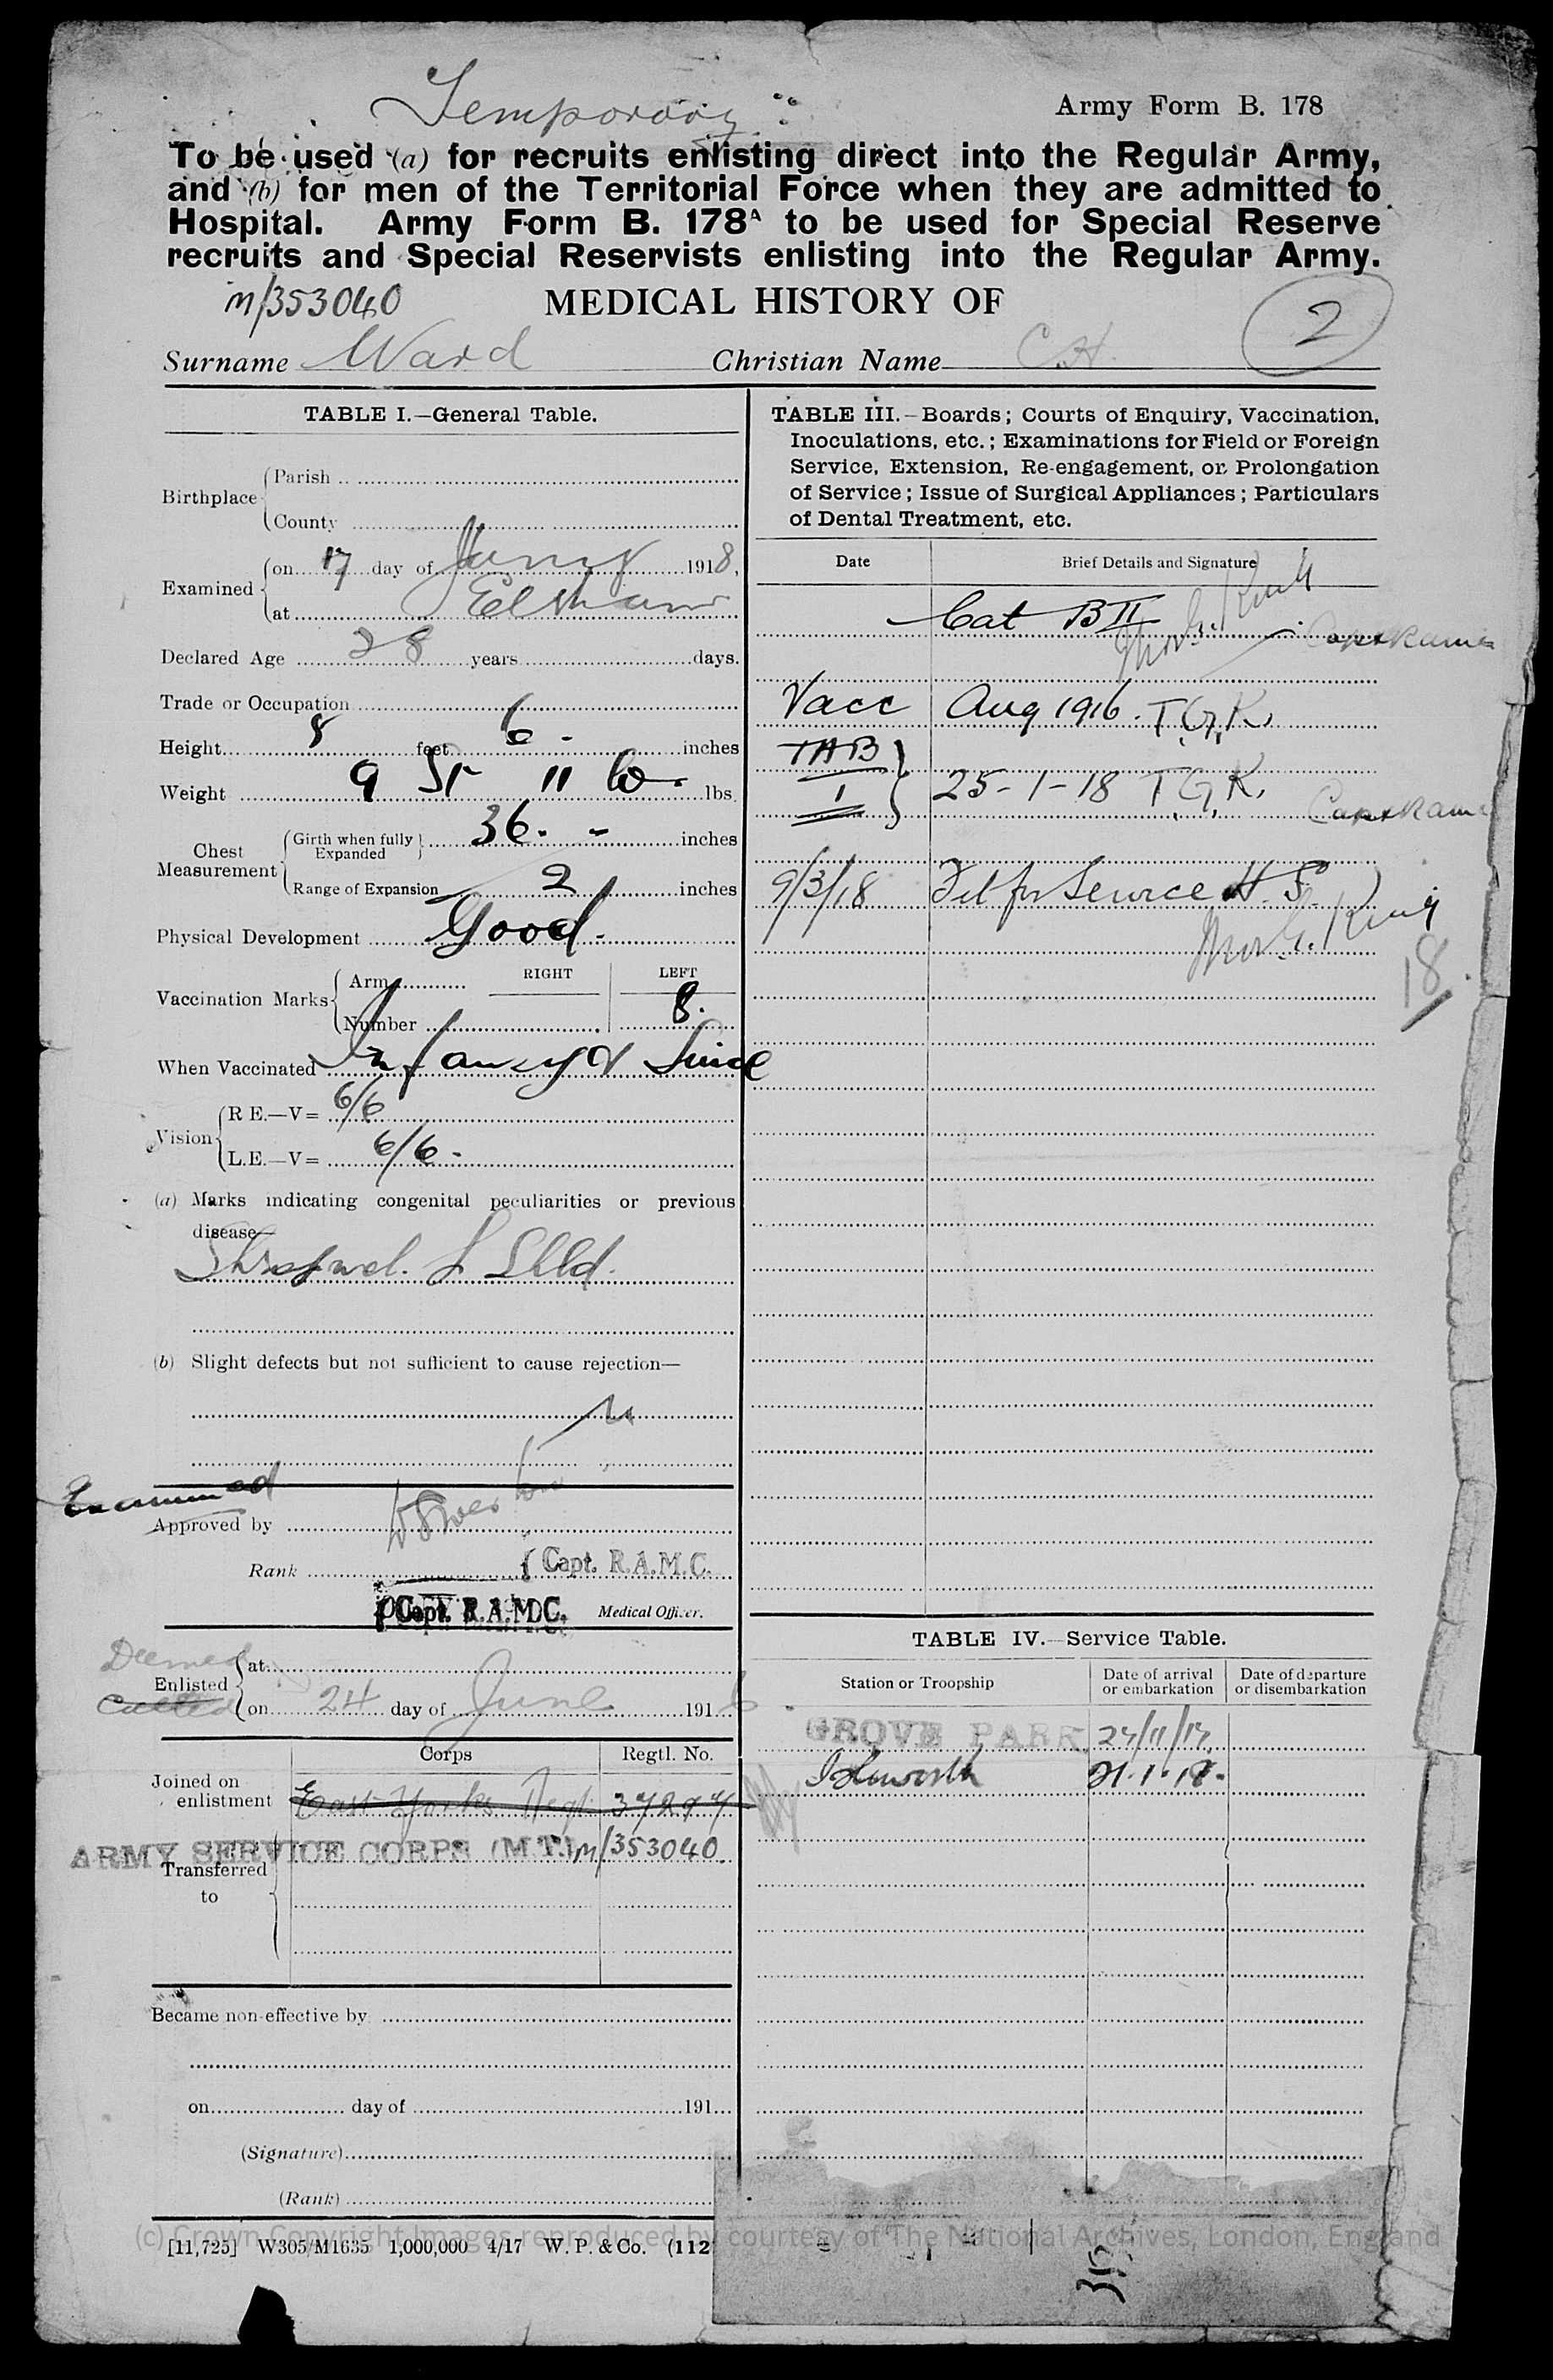 Temporary
Army Form B. 178
To be used (a) for recruits enlisting direct into the Regular Army,
and (b) for men of the Territorial Force when they are admitted to
Hospital. Army Form B. 178A to be used for Special Reserve
recruits and Special Reservists enlisting into the Regular Army.
M/353040
MEDICAL HISTORY OF
2
Surname Ward Christian Name C.H.
TABLE I.—General Table.
Birthplace
Parish
County
Examined
on 17 day of Jany 1918,
at Eltham
Declared Age 28 years days.
Trade or Occupation
Height 5 feet 6 - inches
Weight 9 St 11 lbs.
Chest Measurement
Girth when fully Expanded 36. - inches
Range of Expansion 2 inches
Physical Development Good.
Vaccination Marks
Arm RIGHT LEFT
Number 8.
When Vaccinated Infancy & Since
Vision
R E.—V= 6/6
L.E.—V= 6/6 -
(a) Marks indicating congenital peculiarities or previous
disease—
Shrapnel. L Shld.
(b) Slight defects but not sufficient to cause rejection—
Examined
Approved by
Rank Capt. R.A.M.C.
Capt. R.A.M.C. Medical Officer.
Deemed
Enlisted
Called
at
on 24 day of June 1916
Corps Regtl. No.
Joined on
enlistment
East Yorks Regt 37297
ARMY SERVICE CORPS (M.T.) M/353040
Transferred
to
Became non-effective by
on day of 191
(Signature)
(Rank)
[11,725] W305/M1635 1,000,000 4/17 W. P. & Co. (112
TABLE III.—Boards; Courts of Enquiry, Vaccination,
Inoculations, etc.; Examinations for Field or Foreign
Service, Extension, Re-engagement, or Prolongation
of Service; Issue of Surgical Appliances; Particulars
of Dental Treatment, etc.
Date Brief Details and Signature
Cat B II
Thos G. King
Capt RAMC
Vacc Aug 1916. T.G.K.
TAB
1
25-1-18 T.G.K.
Capt RAMC
9/3/18 Fit for Service H.S.
Thos G. King
18
TABLE IV.—Service Table.
Station or Troopship
Date of arrival
or embarkation
Date of departure
or disembarkation
GROVE PARK 27/11/17
Isleworth 21.1.18.
(c) Crown Copyright Images reproduced by courtesy of The National Archives, London, England